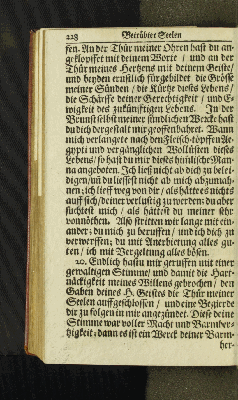 228 Betrübter Seelen
sen. An der Thür meiner Ohren hast du an-
geklopffet mit deinem Worte / und an der
Thür meines Hertzens mit deinem Geiste /
und beyden ernstlich fürgebildet die Grösse
meiner Sünden / die Kürtze dieses Lebens /
die Schärffe deiner Gerechtigkeit / und E-
wigkeit des zukünfftigen Lebens. In der
Brunst selbst meiner sündlichen Wercke hast
du dich dergestalt mir geoffenbahret. Wann
mich verlangete nach den Fleisch-töpffen Æ-
gypti und vergänglichen Wollüsten dieses
Lebens / so hast du mir dieses himlische Man-
na angeboten. Ich ließ nicht ab dich zu belei-
digen / uñ du liessest nicht ab mich abzumah-
nen; ich lieff weg von dir / als hätte es nichts
auff sich / deiner verlustig zu werden: du aber
suchtest mich / als hättest du meiner sehr
vonnöthen. Also stritten wir lange mit ein-
ander; du mich zu beruffen / und ich dich zu
verwerffen; du mit Anerbietung alles gu-
ten / ich mit Vergeltung alles bösen.
20. Endlich hastu mir geruffen mit einer
gewaltigen Stimme / und damit die Hart-
näckigkeit meines Willens gebrochen / den
Gaben deines H. Geistes die Thür meiner
Seelen auffgeschlossen / und eine Begierde
dir zu folgen in mir angezündet. Diese deine
Stimme war voller Macht und Barmher-
tzigkeit; dann es ist ein Werck deiner Barm-
her-